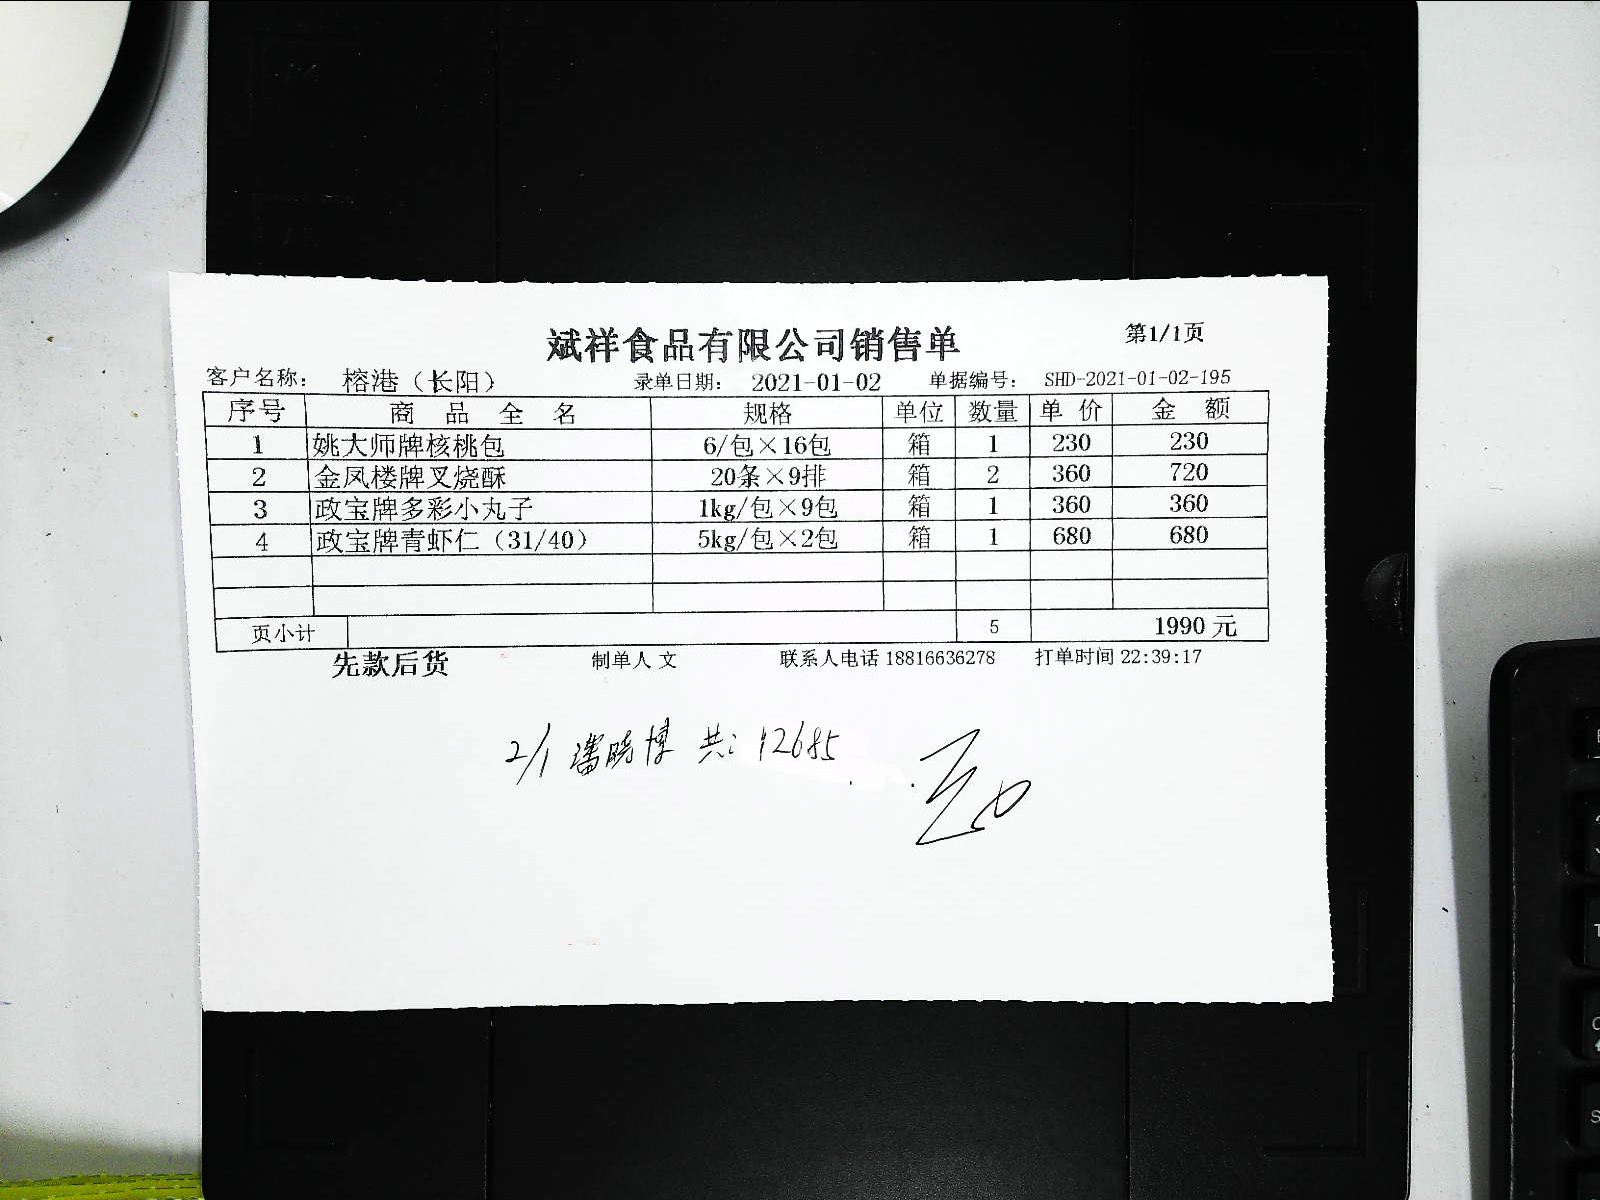 斌祥食品有限公司销售单 第1/1页
客户名称： 榕港（长阳） 录单日期： 2021-01-02 单据编号： SHD-2021-01-02-195
序号 商品全名 规格 单位 数量 单价 金额
1 姚大师牌核桃包 6/包×16包 箱 1 230 230
2 金凤楼牌叉烧酥 20条×9排 箱 2 360 720
3 政宝牌多彩小丸子 1kg/包×9包 箱 1 360 360
4 政宝牌青虾仁（31/40） 5kg/包×2包 箱 1 680 680
页小计 5 1990元
先款后货 制单人 文 联系人电话 18816636278 打单时间 22:39:17
2/1 潘晓博 共: 12685